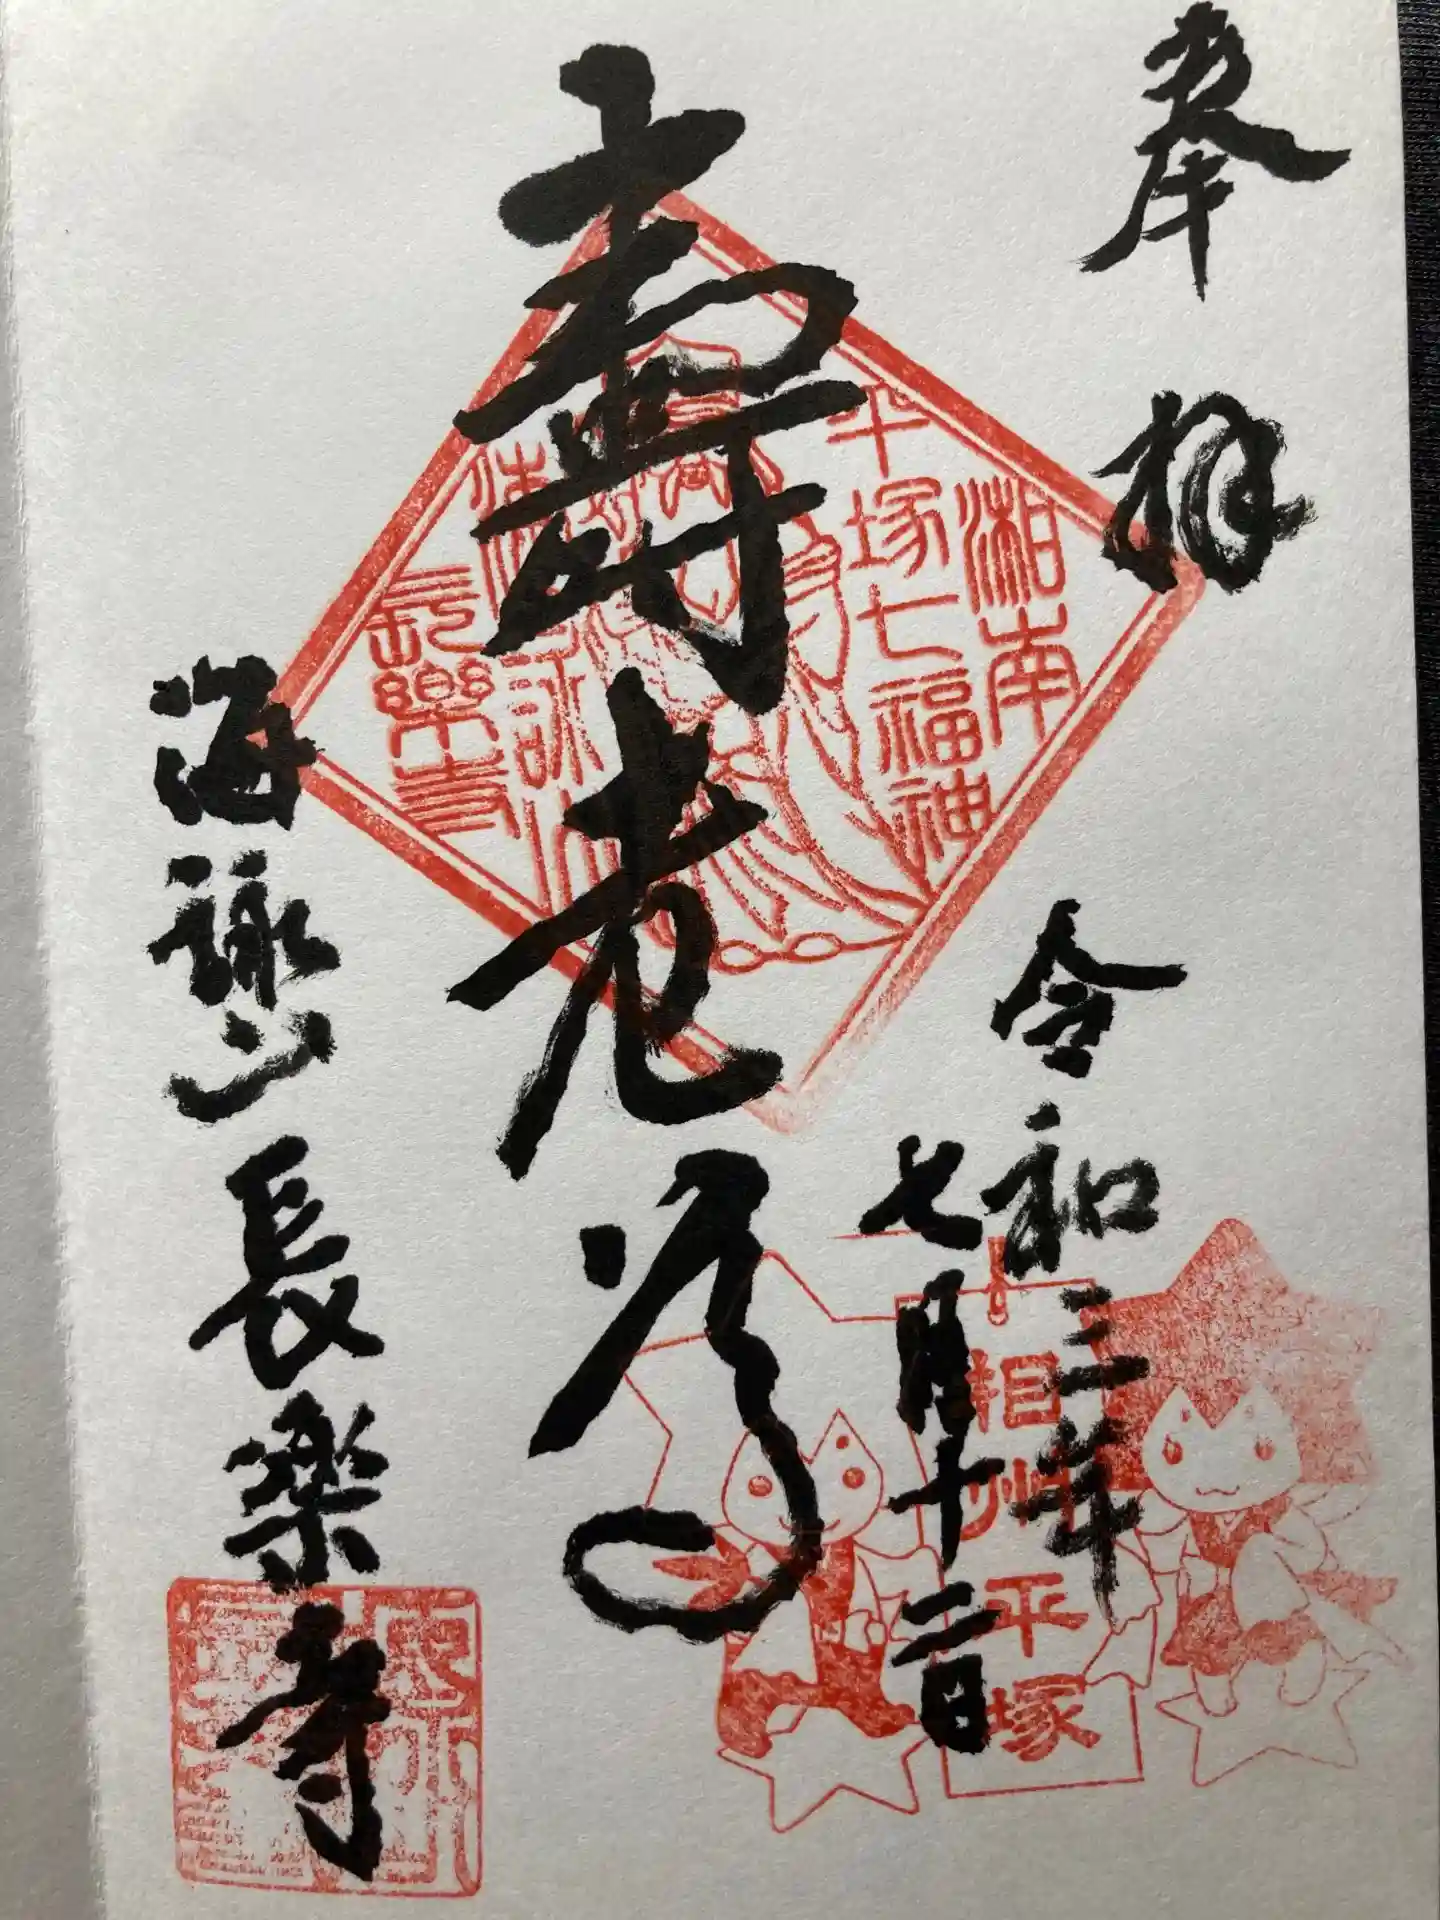 奉拝
令和三年
七月十二日
寿老尊
海詠山長樂寺
湘南
平塚七福神
海詠山
長樂寺
相州平塚